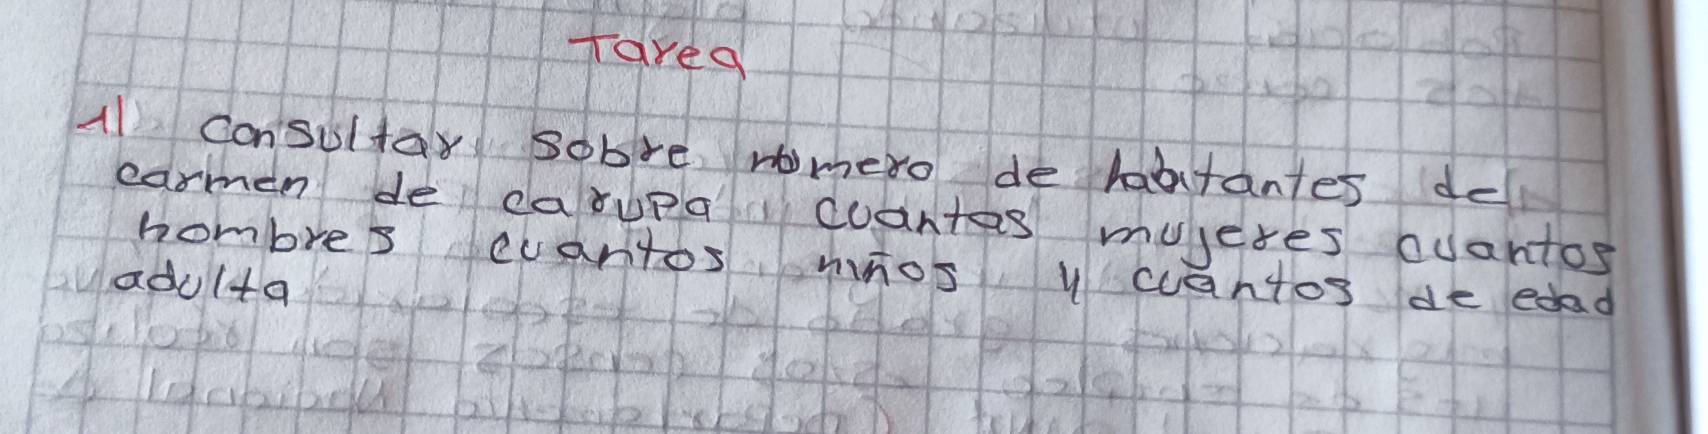 Tarea
1) Consultar sobre número de habitantes del
carmen de carupa cuantas mujeres cuantos
hombres cuantos niños y cuantos de edad
adulta